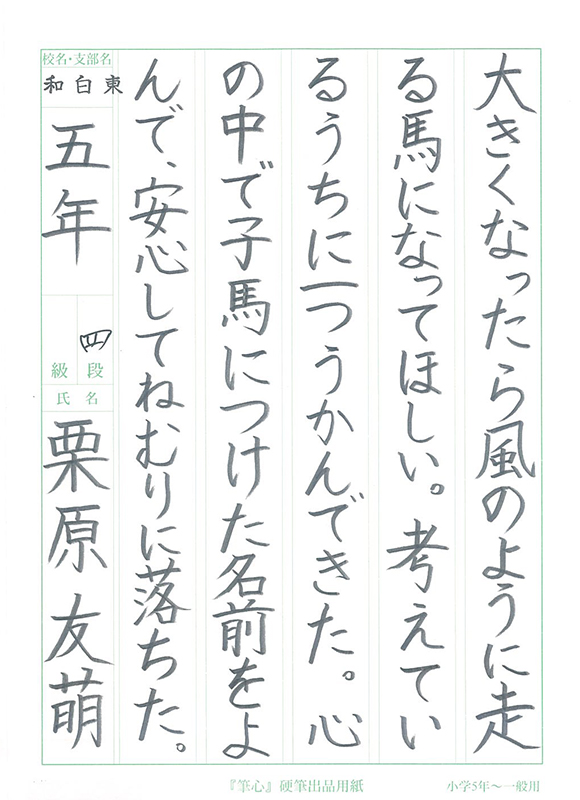 大きくなったら風のように走
る馬になってほしい。考えてい
るうちに一つうかんできた。心
の中で子馬につけた名前をよ
んで、安心してねむりに落ちた。
校名・支部名
和白東
五年
四
段
級
氏名
栗原友萌
『筆心』硬筆出品用紙
小学5年〜一般用